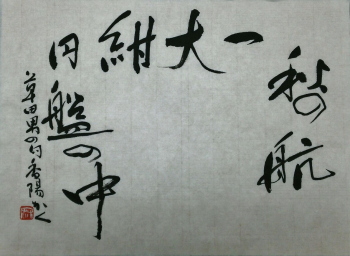 秋の航
一大紺
円盤の中
草田男の句 香陽かく